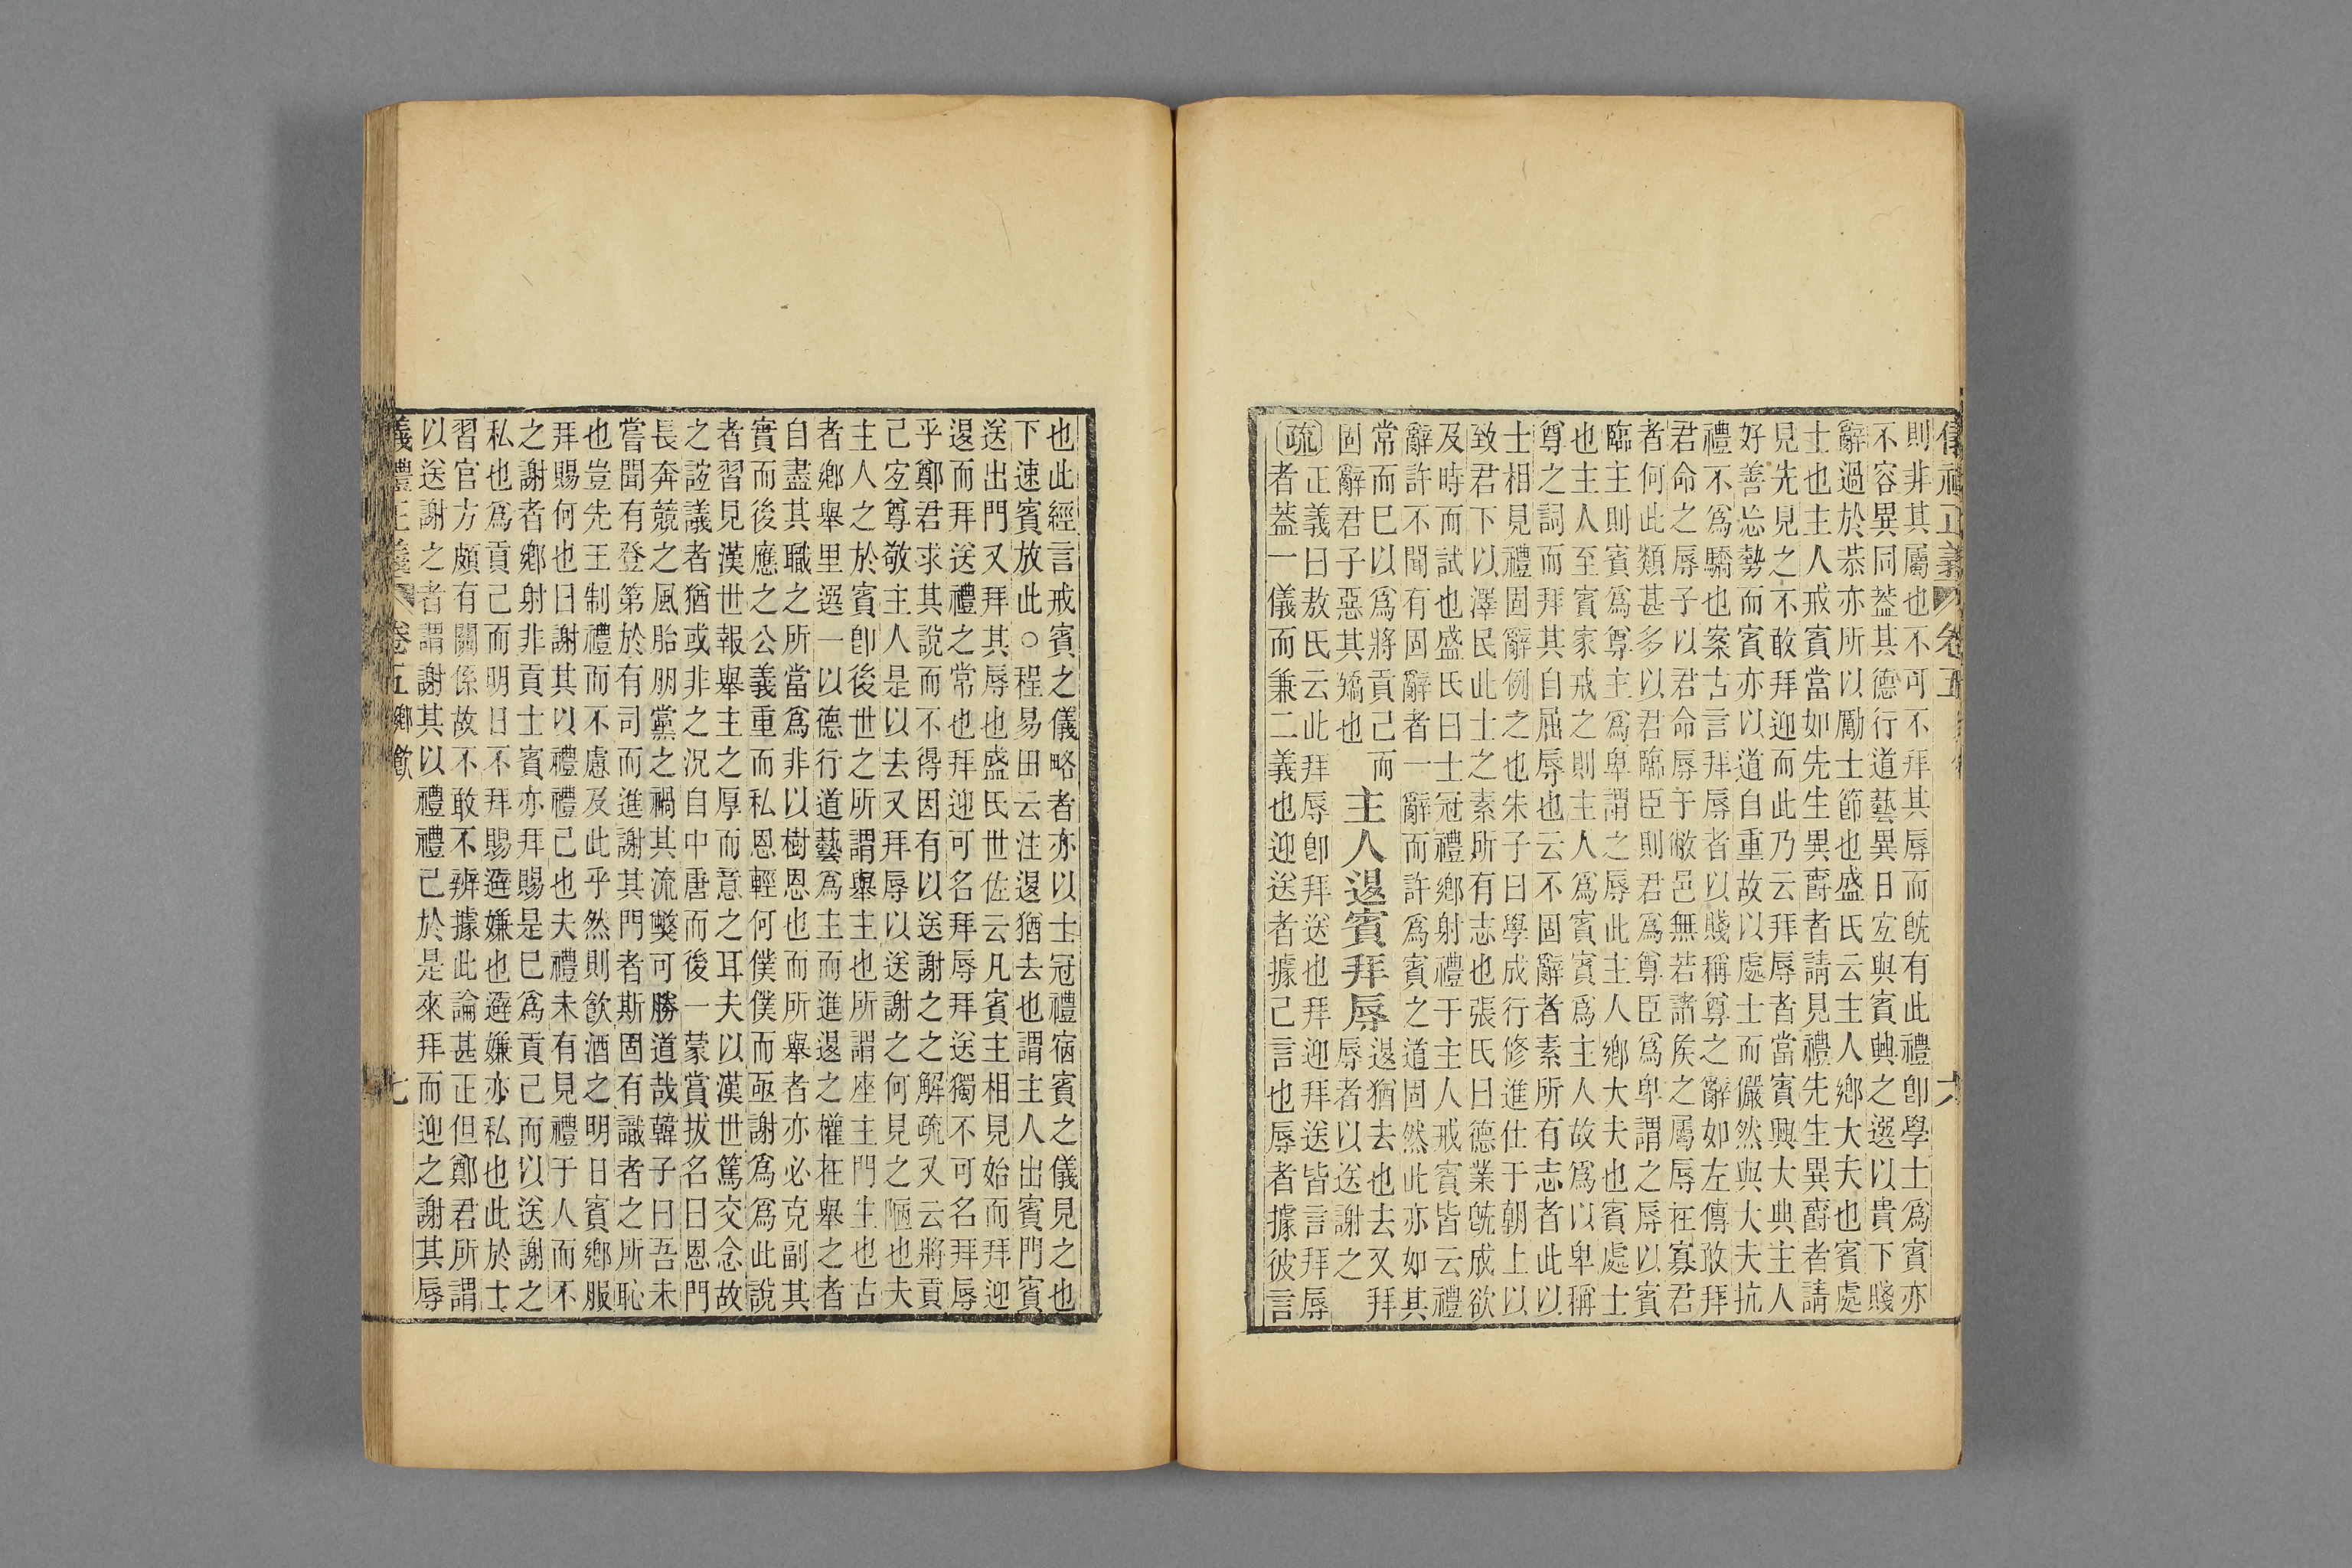 則非其屬也不可不拜其辱而旣有此禮卽學士爲賓亦
不容異同葢其德行道藝異日宐與賓興之選以貴下賤
辭過於恭亦所以勵士節也盛氏云主人鄉大夫也賓處
士也主人戒賓當如先生異爵者請見禮先生異爵者請
見先見之不敢拜迎而此乃云拜辱者當賓興大典主人
好善忘勢而賓亦以道自重故以處士而儼然與大夫抗
禮不爲驕也案古言拜辱者以賤稱尊之辭如左傳敢拜
君命之辱子以君命辱于敝邑無若諸矦之屬辱在寡君
者何此類甚多以君臨臣則君爲尊臣爲卑謂之辱以賓
臨主則賓爲尊主爲卑謂之辱此主人鄉大夫也賓處士
也主人至賓家戒之則主人爲賓賓爲主人故爲以卑稱
尊之詞而拜其自屈辱也云不固辭者素所有志者此以
士相見禮固辭例之也朱子曰學成行修進仕于朝上以
致君下以澤民此士之素所有志也張氏曰德業旣成欲
及時而試也盛氏曰士冠禮鄉射禮于主人戒賓皆云禮
辭許不聞有固辭者一辭而許爲賓之道固然此亦如其
常而巳以爲將貢己而
固辭君子惡其矯也
主人退賓拜辱
退猶去也去又拜
辱者以送謝之
疏
正義曰敖氏云此拜辱卽拜送也拜迎拜送皆言拜辱
者葢一儀而兼二義也迎送者據己言也辱者據彼言
也此經言戒賓之儀略者亦以士冠禮宿賓之儀見之也
下速賓放此○程易田云注退猶去也謂主人出賓門賓
送出門又拜其辱也盛氏世佐云凡賓主相見始而拜迎
退而拜送禮之常也拜迎可名拜辱拜送獨不可名拜辱
乎鄭君求其說而不得因有以送謝之之解疏又云將貢
己宐尊敬主人是以去又拜辱以送謝之何見之陋也夫
主人之於賓卽後世之所謂舉主也所謂座主門生也古
者鄉舉里選一以德行道藝爲主而進退之權在舉之者
自盡其職之所當爲非以樹恩也而所舉者亦必克副其
實而後應之公義重而私恩輕何僕僕而亟謝爲爲此說
者習見漢世報舉主之厚而意之耳夫以漢世篤交念故
之誼議者猶或非之況自中唐而後一蒙賞拔名曰恩門
長奔競之風胎朋黨之禍其流獘可勝道哉韓子曰吾未
嘗聞有登第於有司而進謝其門者斯固有識者之所恥
也豈先王制禮而不慮及此乎然則飮酒之明日賓鄉服
拜賜何也曰謝其以禮禮己也夫禮未有見禮于人而不
之謝者鄉射非貢士賓亦拜賜是巳爲貢己而以送謝之
私也爲貢己而明日不拜賜避嫌也避嫌亦私也此於士
習官方頗有關係故不敢不辨據此論甚正但鄭君所謂
以送謝之者謂謝其以禮禮己於是來拜而迎之謝其辱
儀禮正義 卷五 鄉飮 七